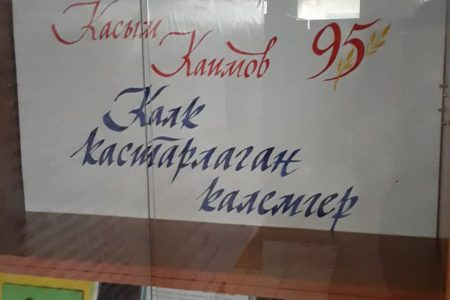 Касым
Каимов 95
Калк
кастарлаган
калемгер